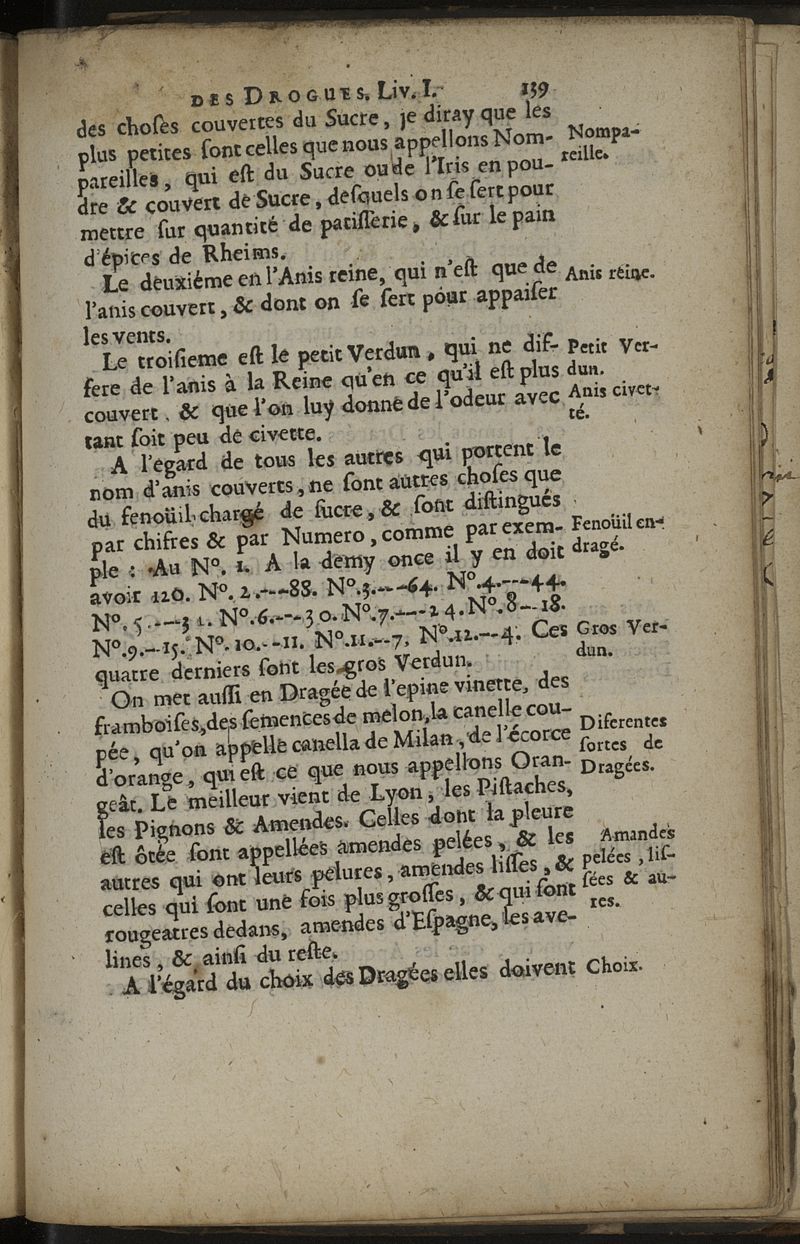 DES DROGUES. LIV. I. 139
des choſes couvertes du Sucre, je diray que les
plus petites ſont celles que nous appellons Nom- Nompa-
pareilles, qui eſt du Sucre ou de l'Iris en pou- reille.
dre & couvert de Sucre, deſquels on ſe ſert pour
mettre ſur quantité de patiſſerie, & ſur le pain
d'épices de Rheims.
Le deuxiéme en l'Anis reine, qui n'eſt que de Anis reine.
l'anis couvert, & dont on ſe ſert pour appaiſer
les vents.
Le troiſieme eſt le petit Verdun, qui ne dif- Petit Ver-
fere de l'anis à la Reine qu'en ce qu'il eſt plus dun.
couvert. & que l'on luy donne de l'odeur avec Anis civet-
tant ſoit peu de civette. té.
A l'egard de tous les autres qui portent le
nom d'anis couverts, ne ſont autres choſes que
du fenoüil chargé de ſucre, & ſont diſtingués
par chifres & par Numero, comme par exem- Fenoüil en-
ple : Au N°. 1. A la demy once il y en doit dragé.
avoir 120. N°. 2.---88. N°.3.---64. N°.4.---44.
N°. 5.---31. N°.6.---30. N°.7.---24. N°. 8--18.
N°.9.--15. N°. 10.--11. N°.11.--7. N°.12.--4. Ces Gros Ver-
quatre derniers ſont les gros Verdun. dun.
On met auſſi en Dragée de l'epine vinette, des
framboiſes, des ſemences de melon, la canelle cou-
pée, qu'on appelle canella de Milan, de l'écorce Diferentes
d'orange, qui eſt ce que nous appellons Oran- ſortes de
geât. Le meilleur vient de Lyon, les Piſtaches, Dragées.
les Pignons & Amendes. Celles dont la pleure
eſt ôtée ſont appellées amendes pelées, & les Amandes
autres qui ont leurs pelures, amendes liſſes, & pelées, liſ-
celles qui ſont une fois plus groſſes, & qui ſont ſées & au-
rougeatres dedans, amendes d'Eſpagne, les ave- res.
lines, & ainſi du reſte.
A l'égard du choix des Dragées elles doivent Choix.